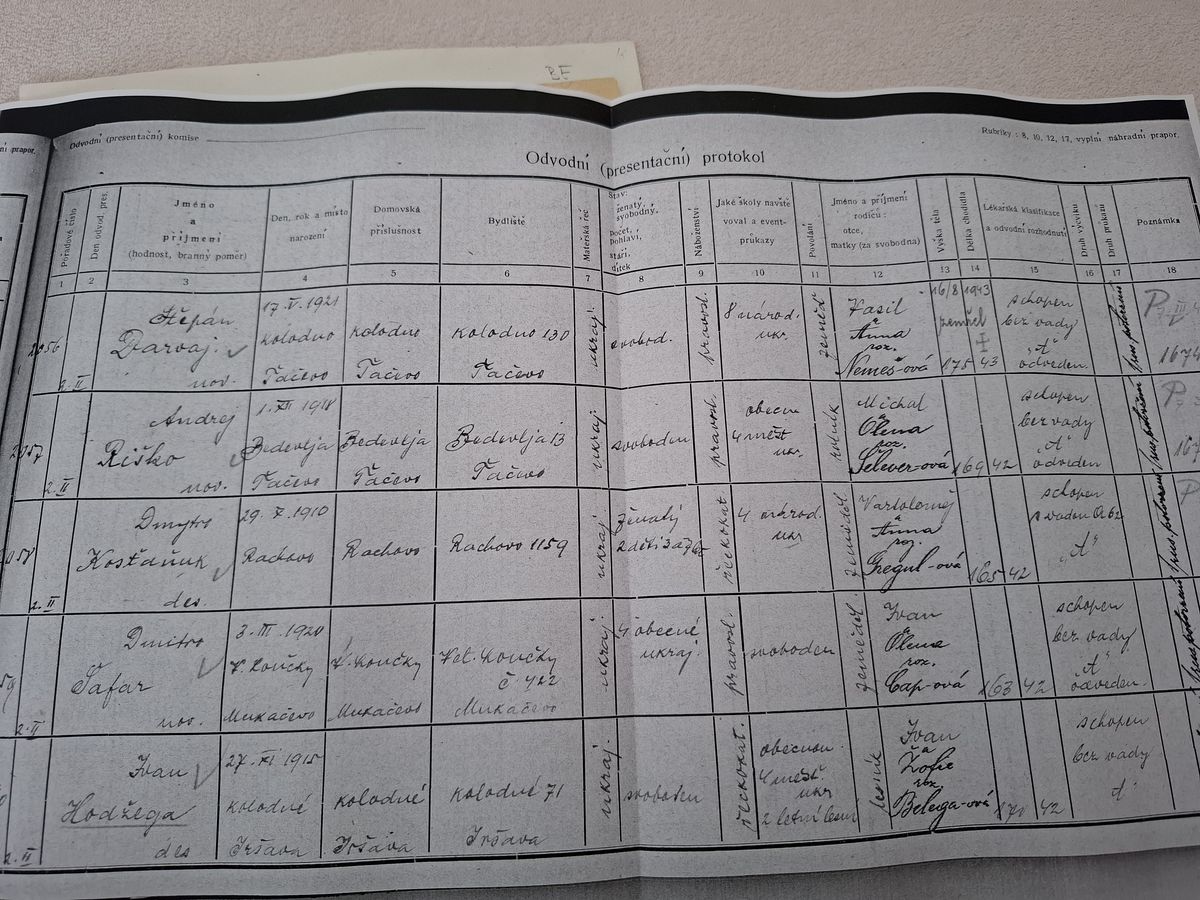 RF
ní prapor.
Odvodní (presentační) komise
Rubriky : 8, 10, 12, 17, vyplní náhradní prapor.
Odvodní (presentační) protokol
Pořadové číslo
Den odvod. pres.
Jméno
a
příjmení
(hodnost, branný poměr)
Den, rok a místo
narození
Domovská
příslušnost
Bydliště
Mateřská řeč
Stav:
ženatý,
svobodný,
počet,
pohlaví,
stáří
dítek
Náboženství
Jaké školy navště
voval a event-
průkazy
Povolání
Jméno a příjmení
rodičů:
otce,
matky (za svobodna)
Výška těla
Délka chodidla
Lékařská klasifikace
a odvodní rozhodnutí
Druh výcviku
Druh průkazu
Poznámka
1 2 3 4 5 6 7 8 9 10 11 12 13 14 15 16 17 18
2056
2.II
Štěpán
Darvaj.
nov.
17.V.1921
Kolodno
Tačevo
Kolodno
Tačevo
Kolodno 130
Tačevo
ukraj.
svobod.
pravosl.
8 národ.
ukr.
zeměd
Vasil
a
Anna
roz.
Nemeš-ová
16/8 1943
zemřel
175 43
schopen
bez vady
"A"
odveden.
1674
2057
2.II
Andrej
Riško
nov.
1.XII 1918
Bedevlja
Tačevo
Bedevlja
Tačevo
Bedevlja 13
Tačevo
ukraj.
svoboden
pravosl.
obecn
4 měšť
ukr.
rolník
Michal
a
Olena
roz.
Šelever-ová
169 42
schopen
bez vady
"A"
odveden
167
2058
2.II
Dmytro
Kosťaňuk
des
29. X. 1910
Rachovo
Rachovo
Rachovo 1159
ukraj
ženatý
2 děti
řeckokat
4 národ.
ukr
zeměděl
Vartolomej
a
Anna
roz.
Gregul-ová
165 42
schopen
s vadou
"A"
59
2.II
Dmitro
Šafar
nov.
3. III. 1920
V. Loučky
Mukačevo
V. Loučky
Mukačevo
Vel. Loučky
č 422
Mukačevo
ukraj.
4 obecné
ukraj.
pravosl.
svoboden
zeměděl.
Ivan
Olena
roz.
Cap-ová
163 42
schopen
bez vady
"A"
odveden.
2.II
Ivan
Hodžega
des
27. XI 1915
Kolodné
Iršava
Kolodné
Iršava
Kolodné 71
Iršava
ukraj.
svoboden
řeckokat.
obecnou
4 měšť
ukr
2 letní lesní
lesník
Ivan
a
Žofie
roz.
Belega-ová
170 42
schopen
bez vady
"A"